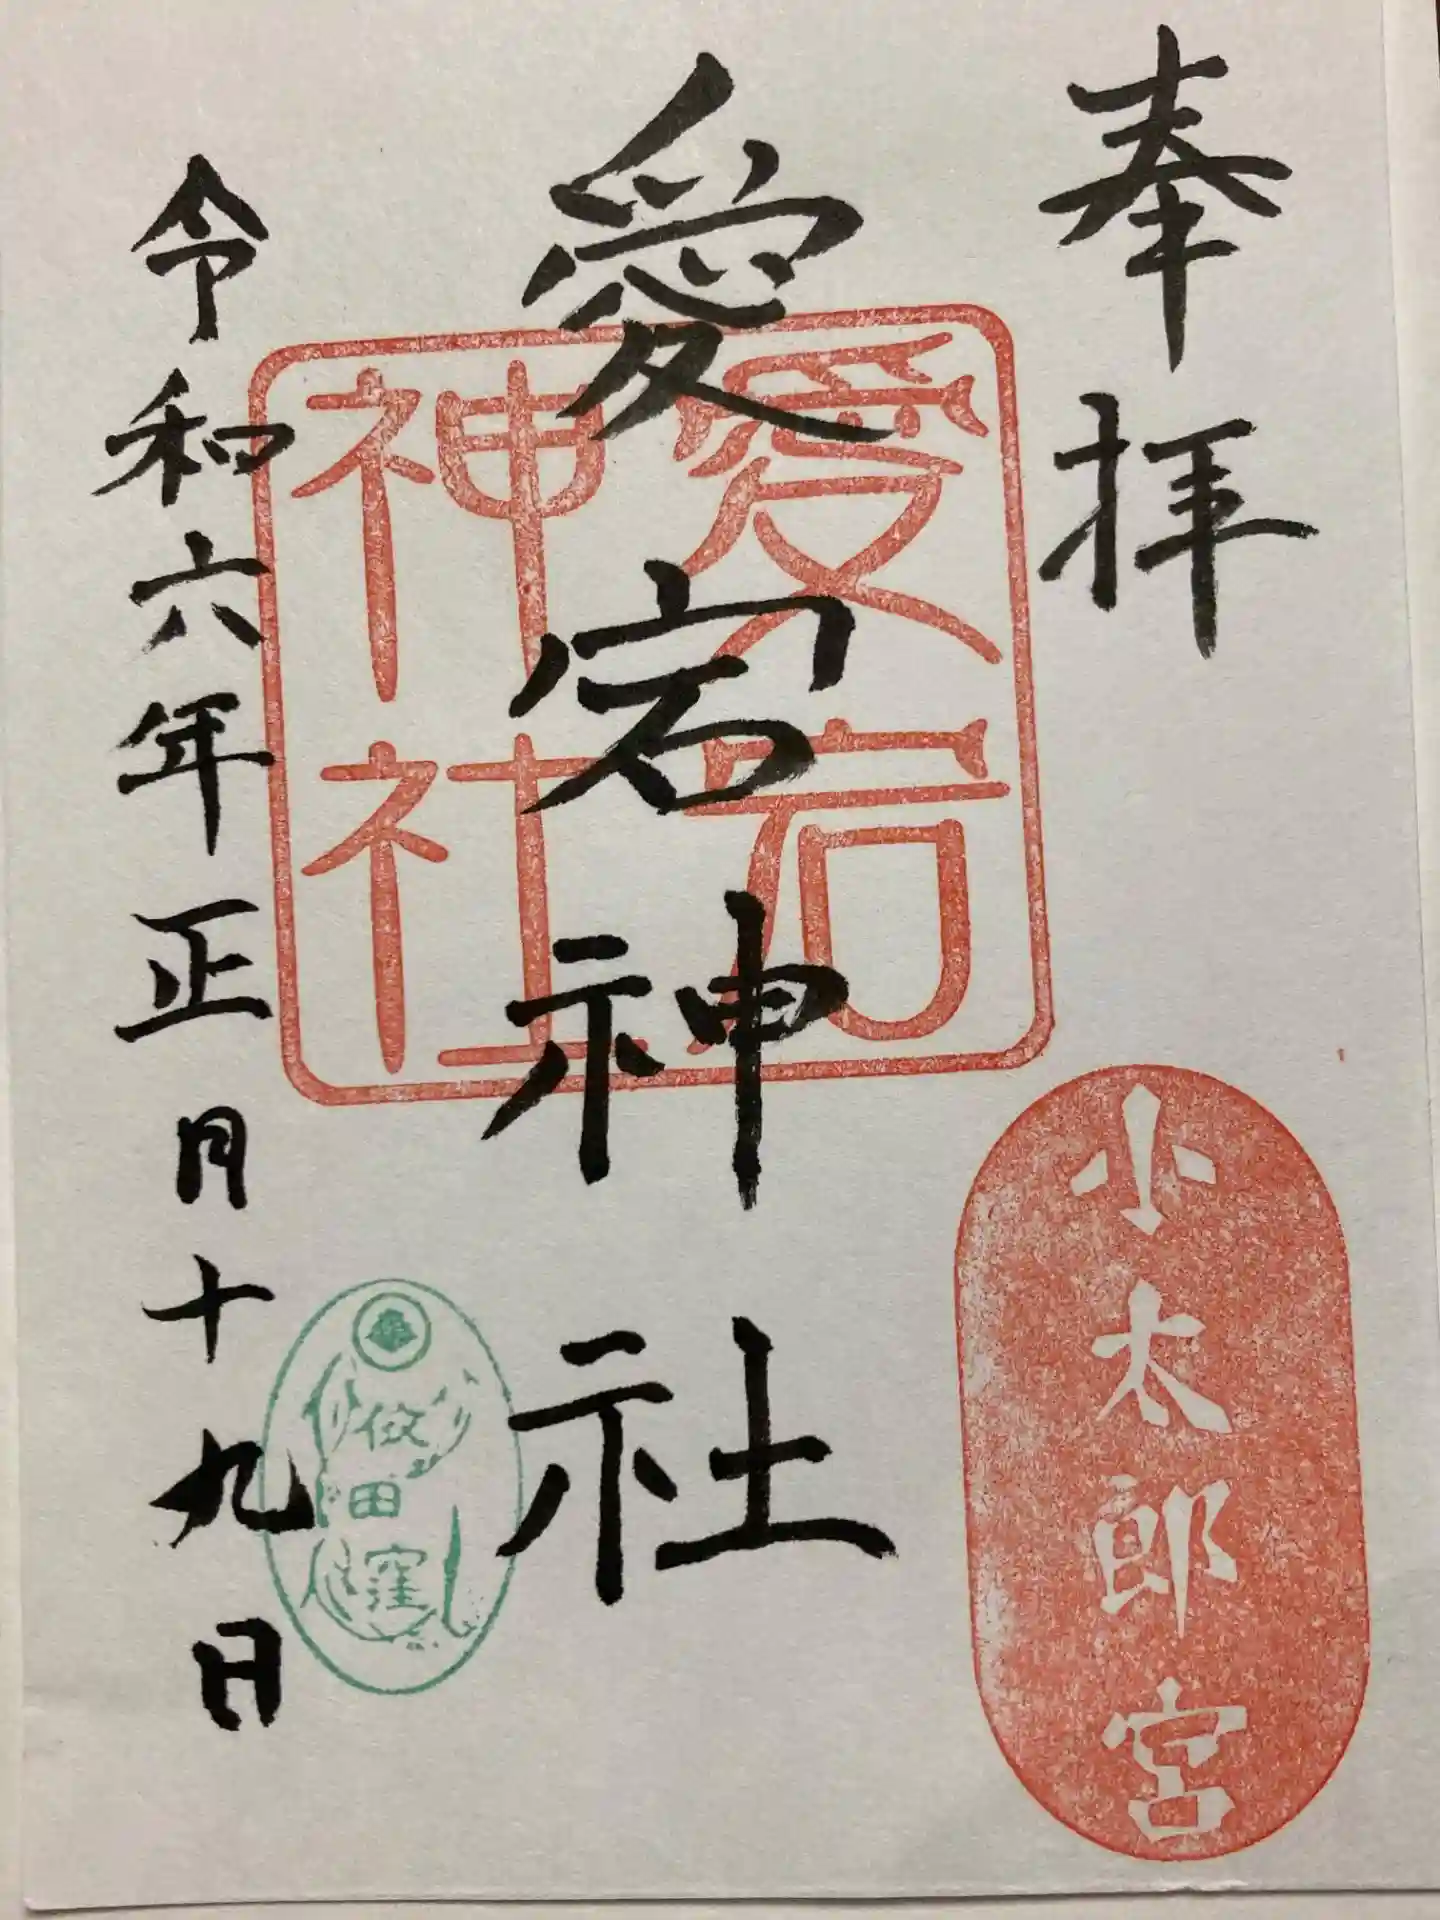 奉拝
小太郎宮
愛宕神社
愛宕
神社
令和六年正月十九日
田窪